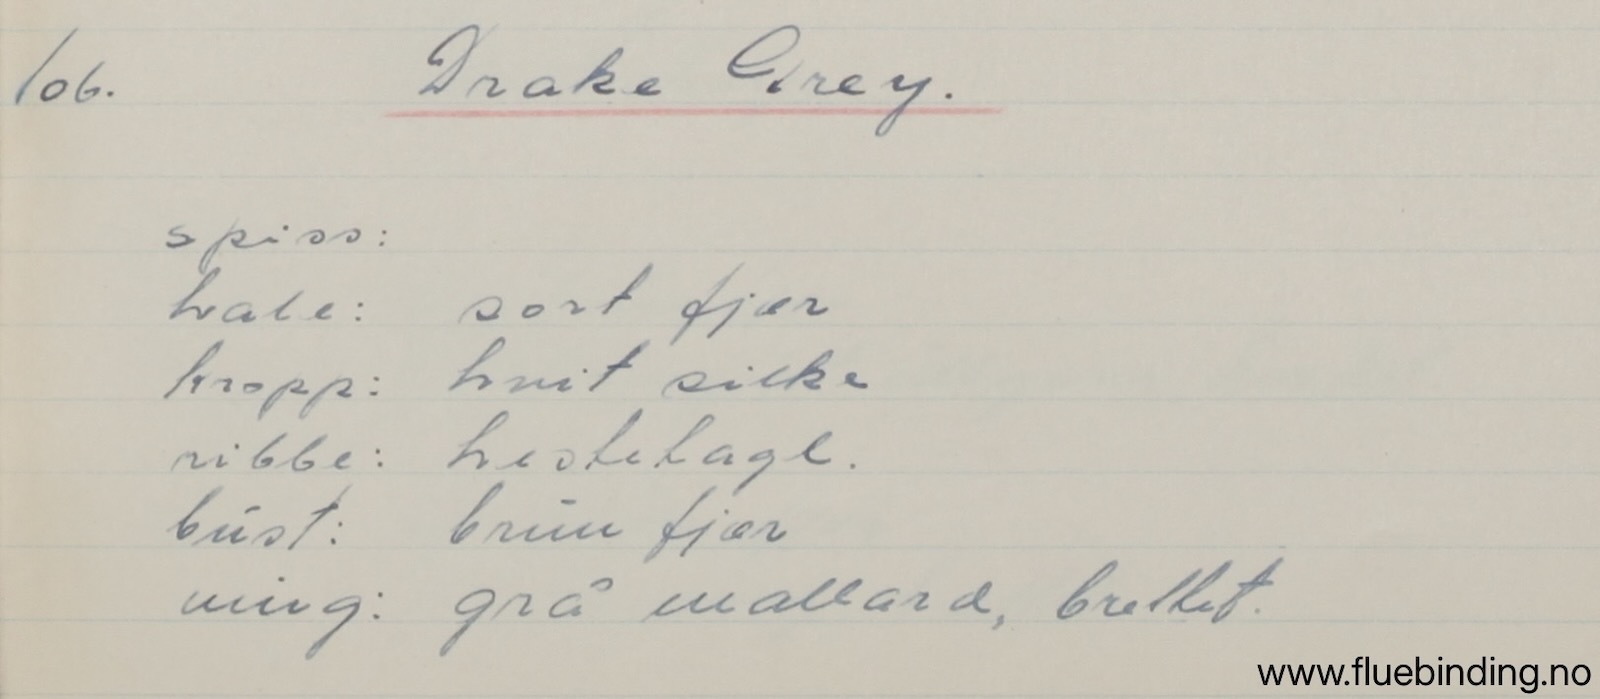 106. Drake Grey.
spiss:
hale: sort fjær
kropp: hvit silke
ribbe: hestetagl.
bust: brun fjær
ving: grå mallard, brettet.
www.fluebinding.no